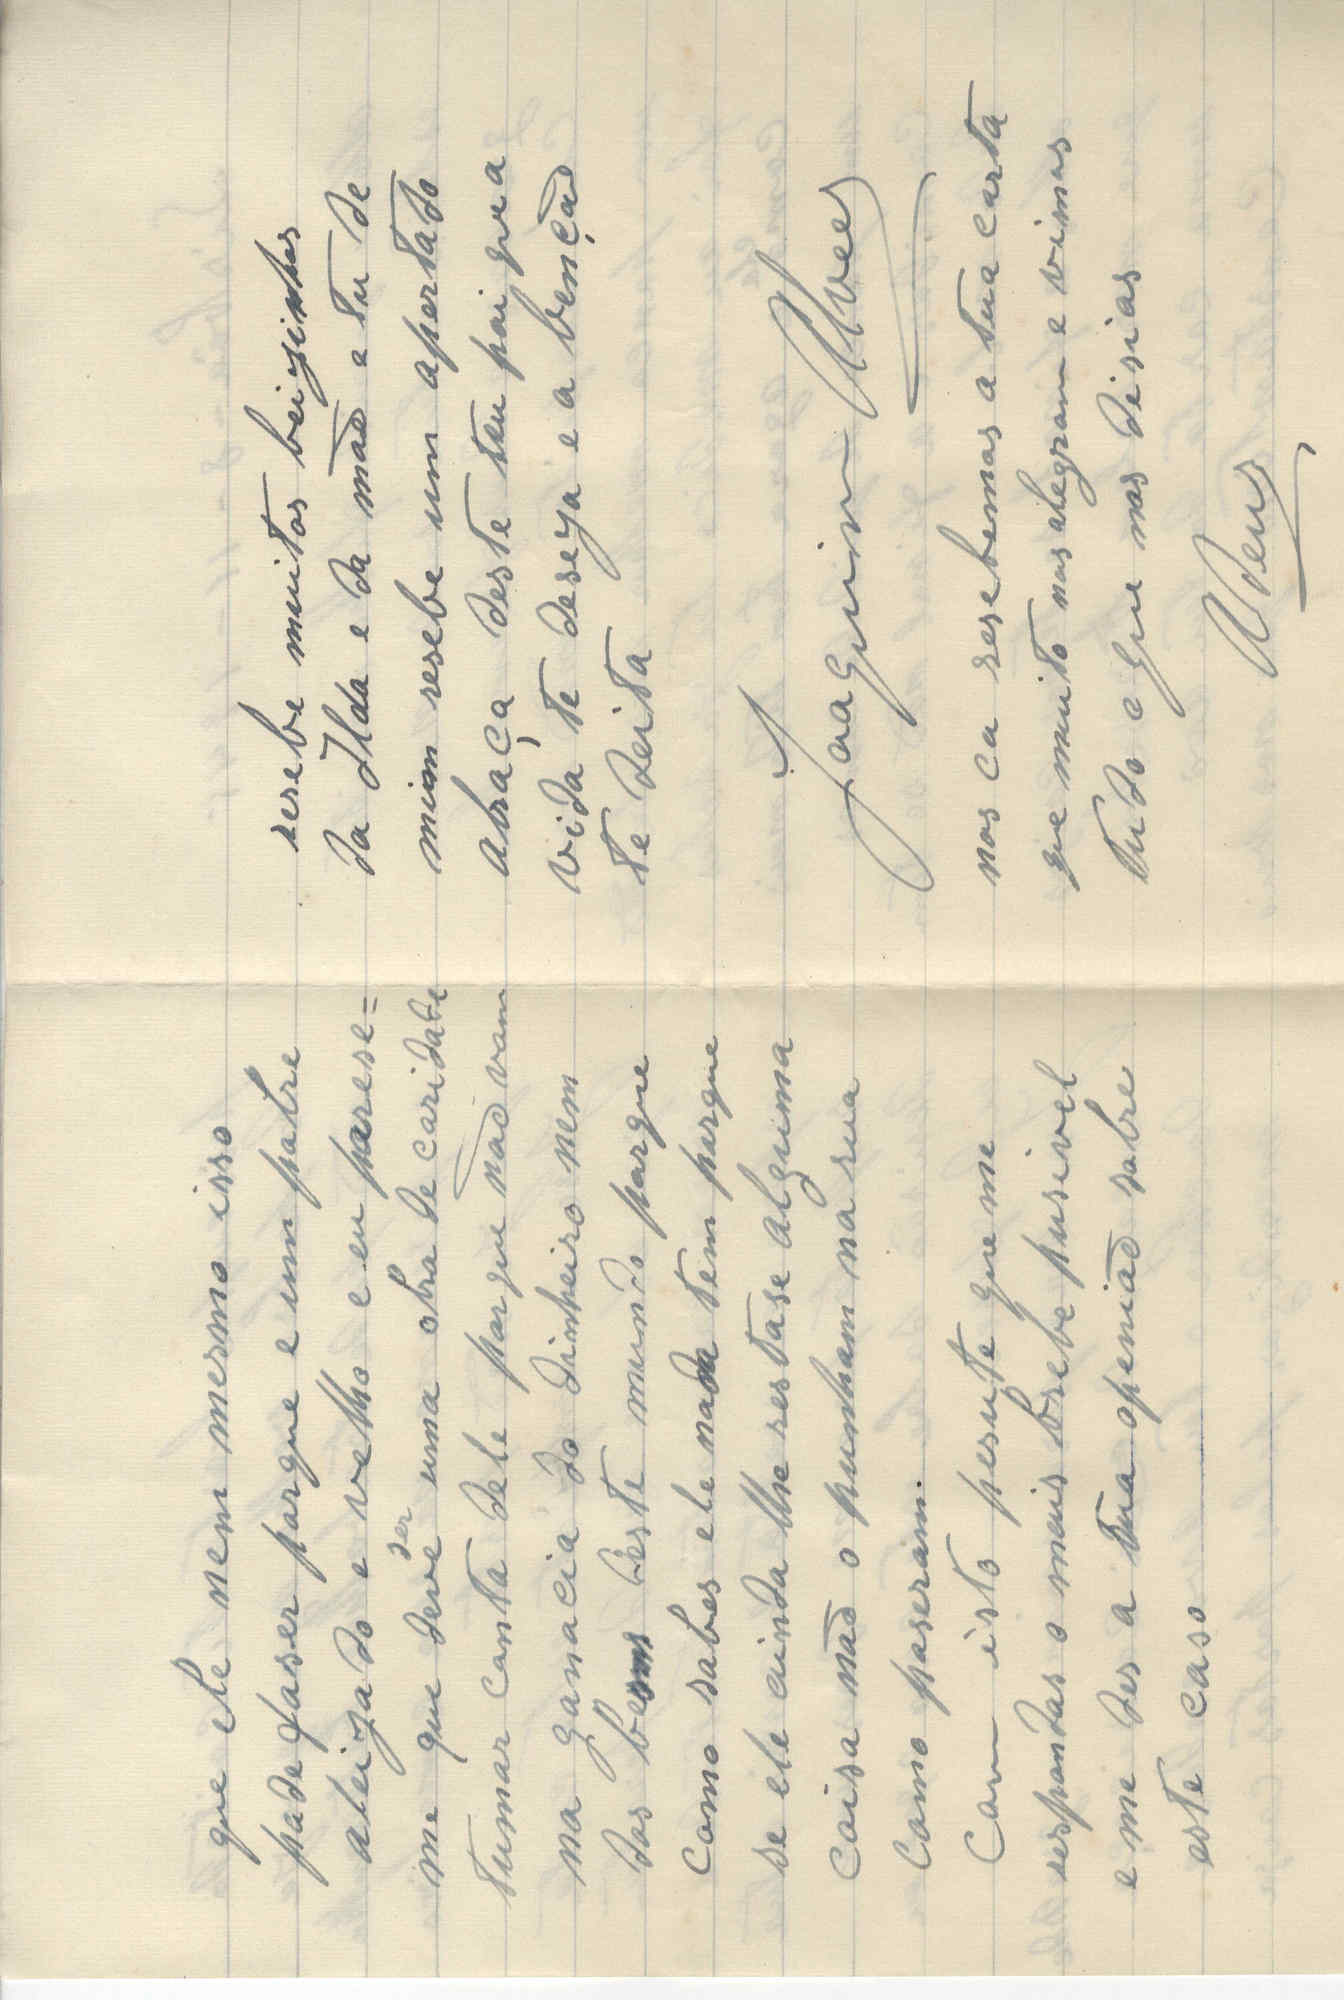 que ele nem mesmo isso
pode faser porque e um pobre
aleijado e velho e eu parese=
me que deve ser uma obra de caridade
tumar conta dele porque não vam
na ganacia do dinheiro nem
dos bens deste mundo porque
como sabes ele nada tem porque
se ele ainda lhe restase alguma
coisa não o punham na rua
como poseram.
Com isto pesute que me
respondas o mais breve pusivel
e me des a tua openião sobre
este caso
resebe muitos beijinhos
da Ilda e da mãe e tu de
mim resebe um apertado
abraça deste teu pai que a
vida te deseja e a benção
te deita
Joaquim Alves
nos ca resebemos a tua carta
que muito nos alegram e vimos
tudo e que nos disias
Adeus